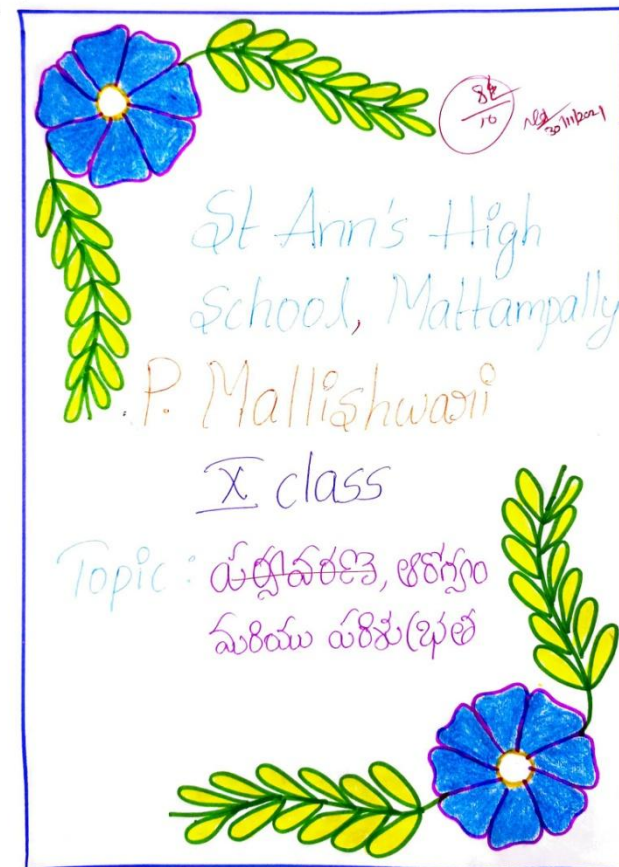 8½/10
30/11/2021
St Ann's High
School, Mattampally
P. Mallishwari
X class
Topic: పర్యావరణ, ఆరోగ్యం
మరియు పరిశుభ్రత